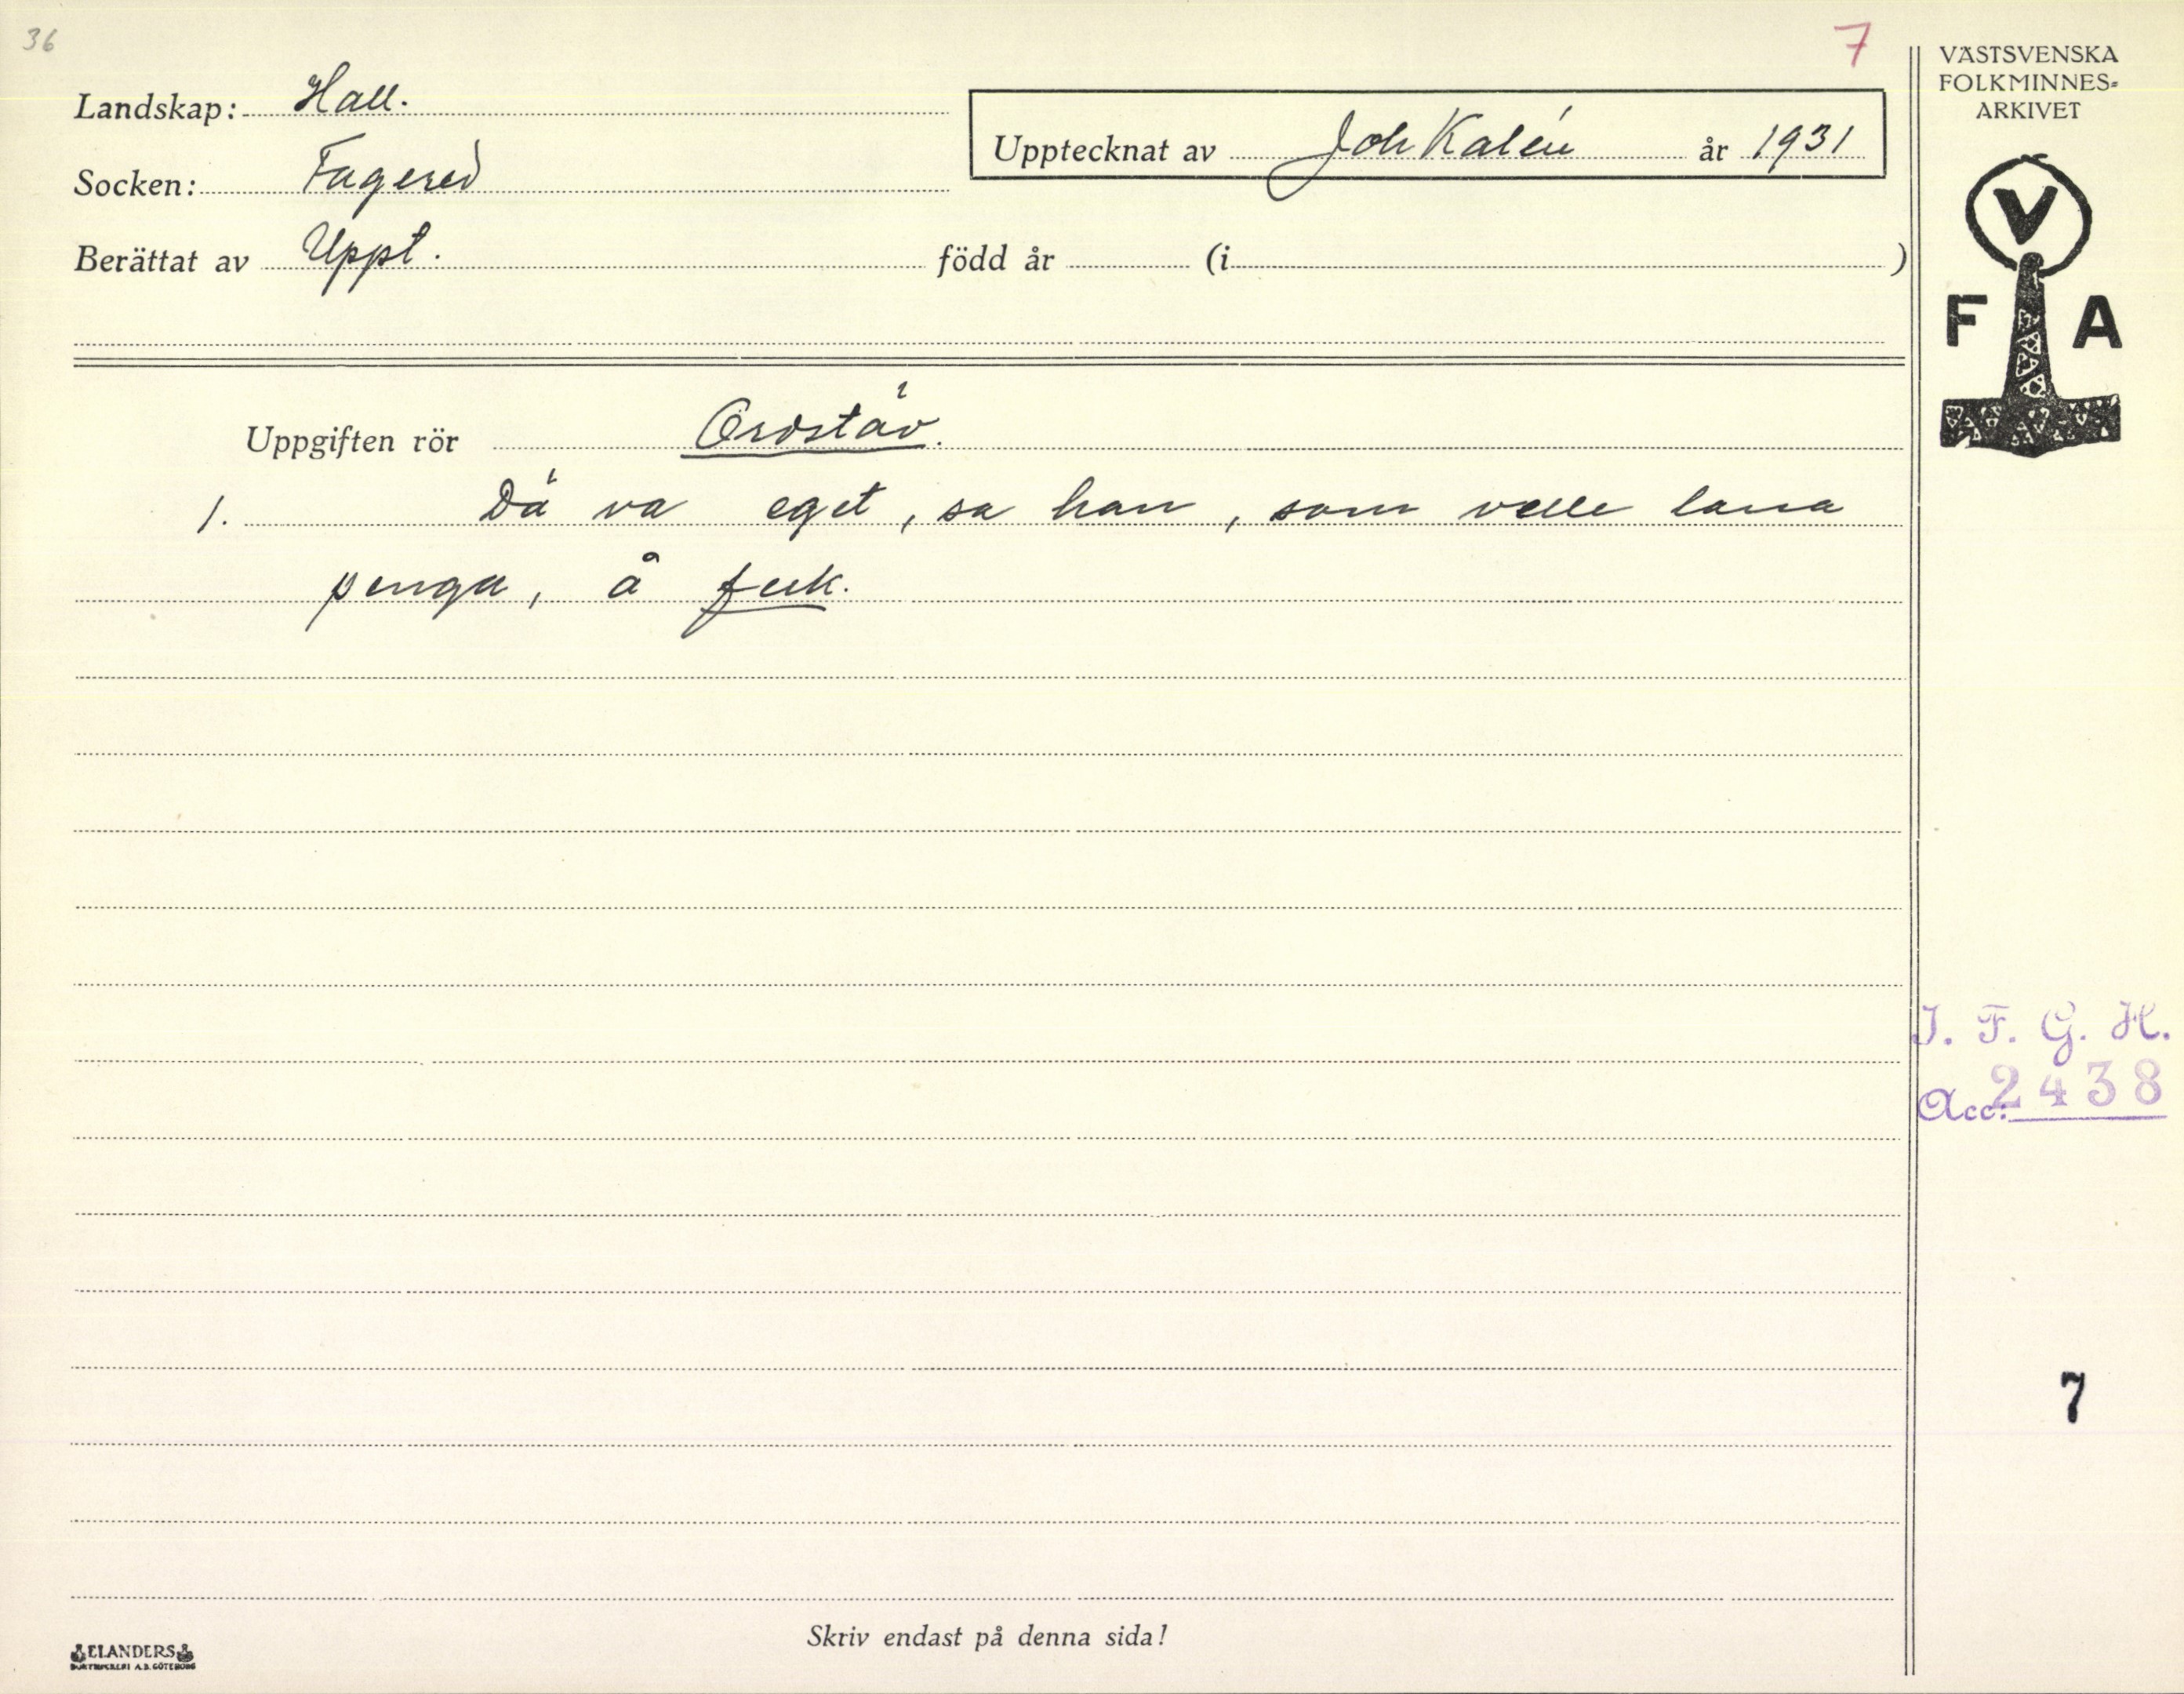 36
7
VÄSTSVENSKA
FOLKMINNES-
ARKIVET
Landskap: Hall.
Upptecknat av Joh Kalén år 1931
Socken: Fagered
Berättat av Uppt. född år (i )
V
F A
Uppgiften rör Ordstäv.
1. Dä va eget, sa han, som velle lana
penga, å fick.
I. F. G. H.
Acc. 2438
7
Skriv endast på denna sida!
ELANDERS
BOKTRYCKERI A.B. GÖTEBORG